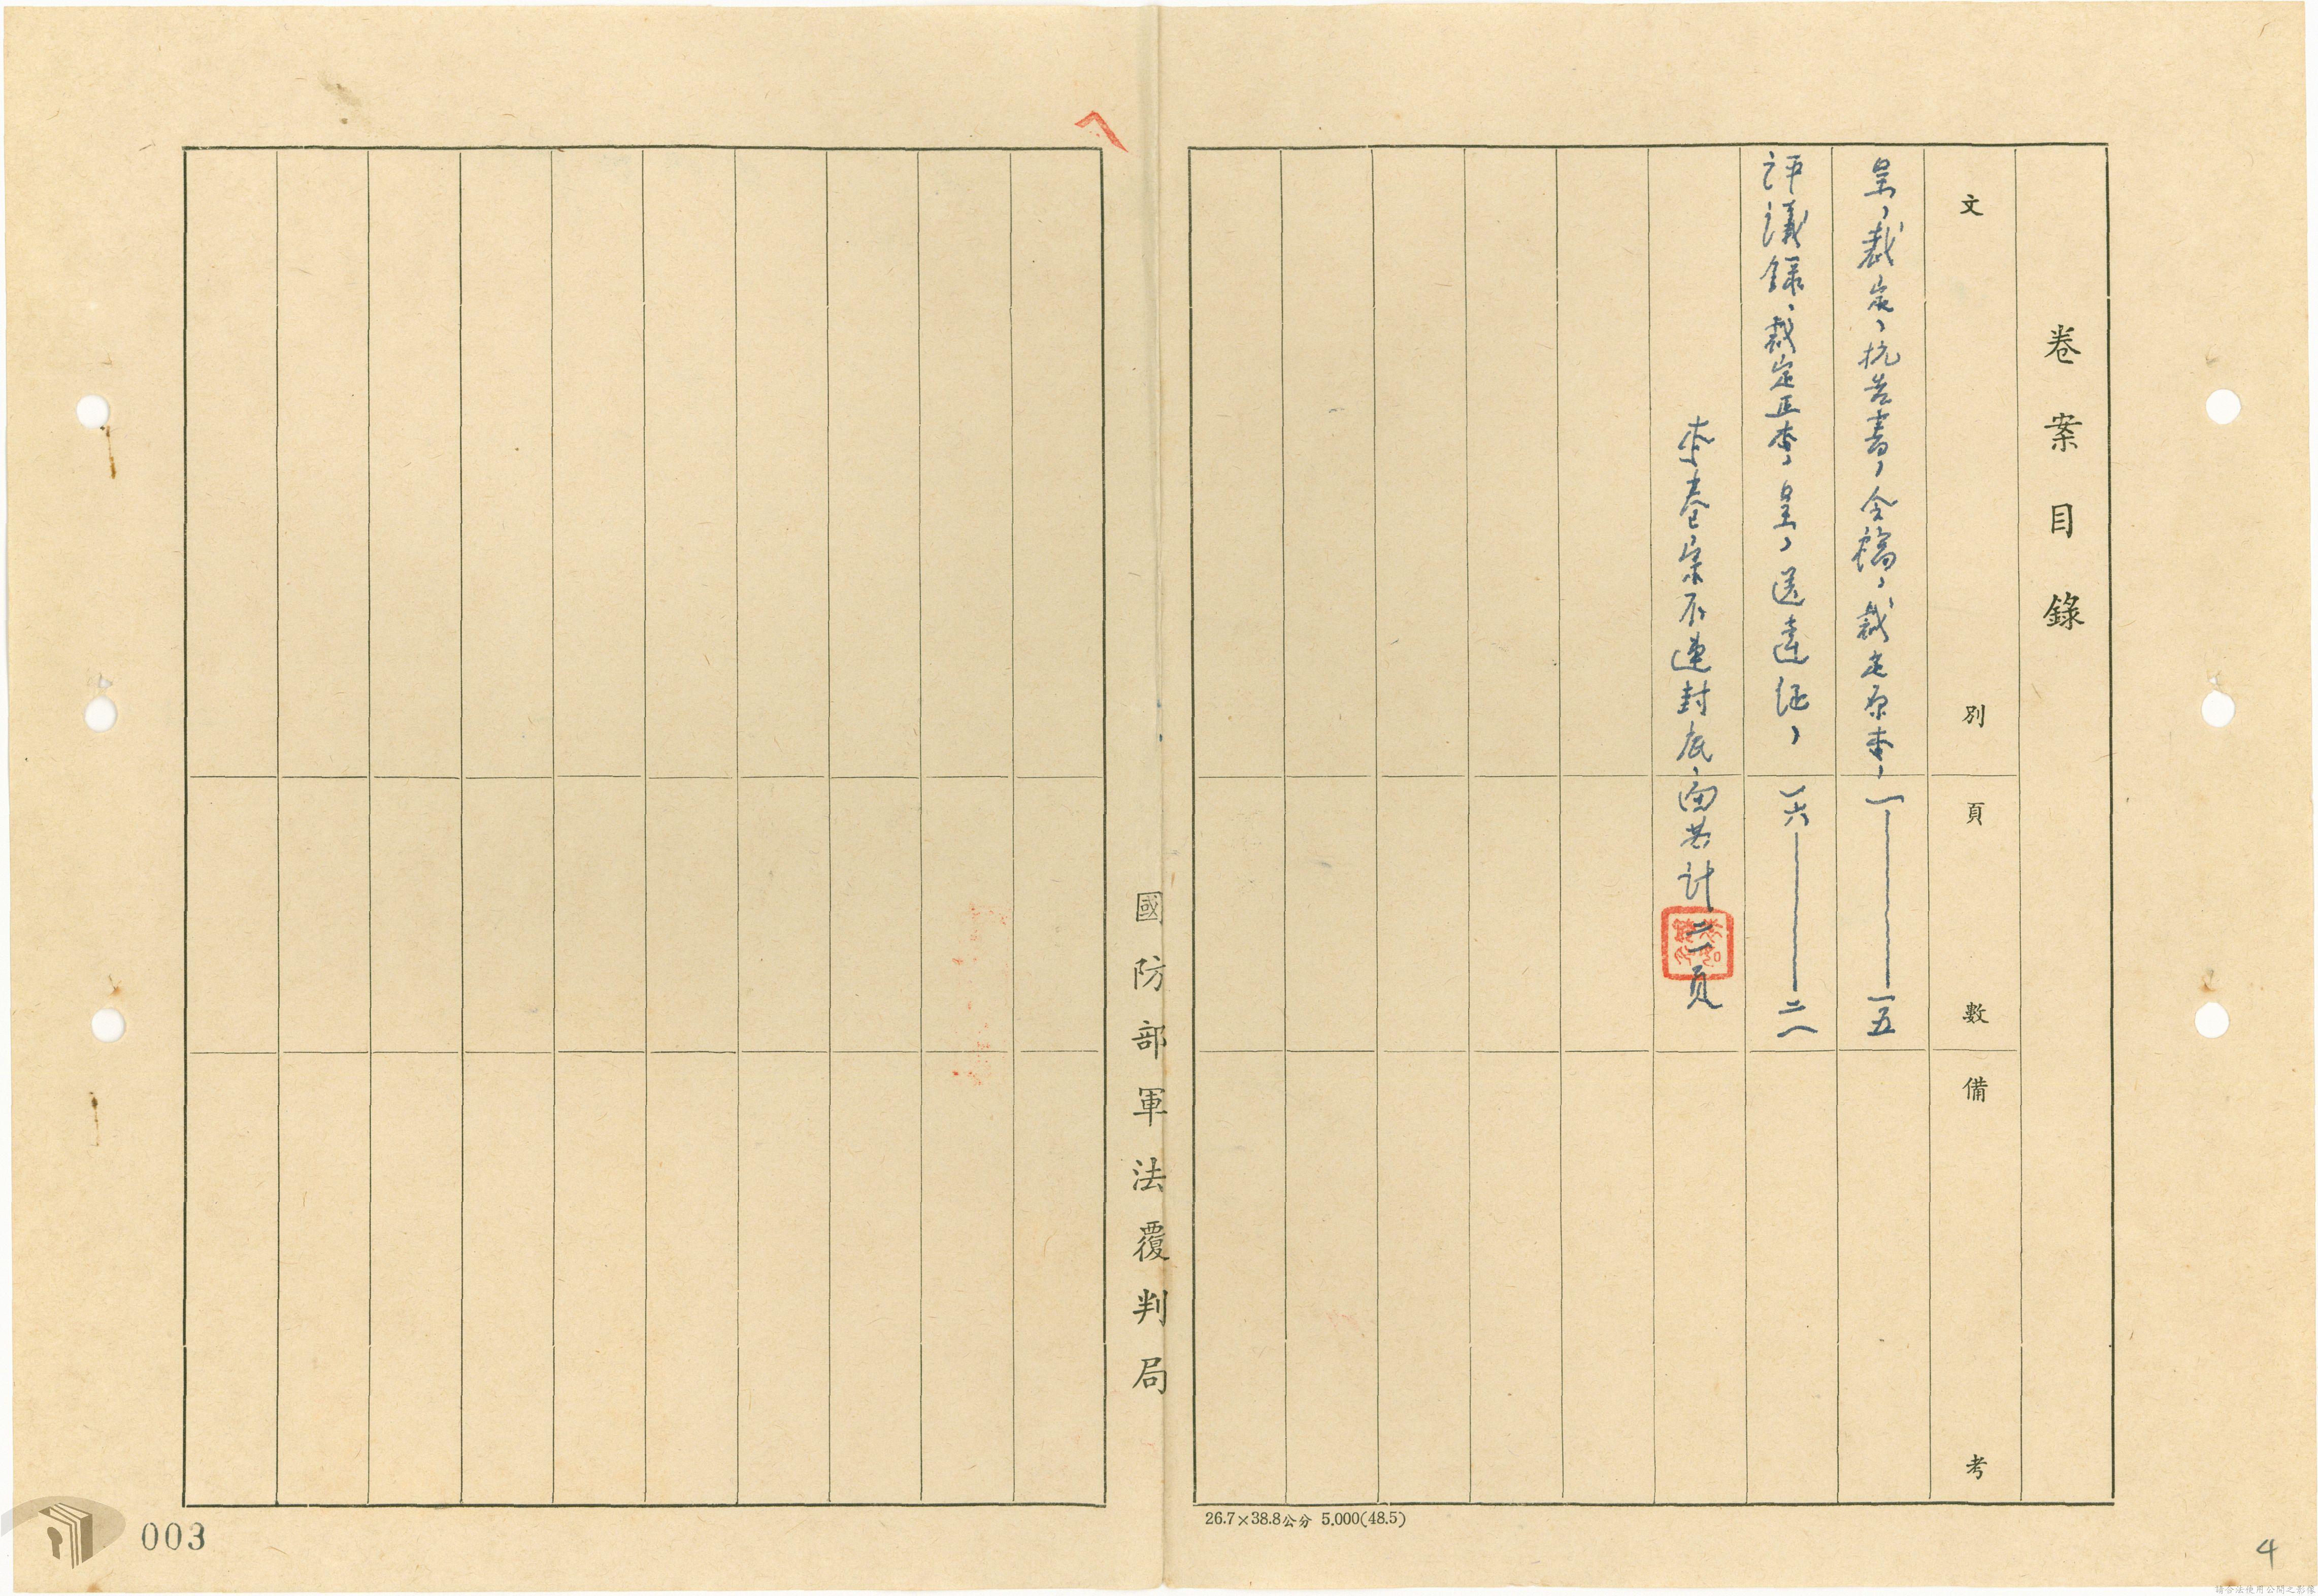 卷案目錄
文別 頁數 備考
呈、裁定、抗告書、令稿、裁定原本、 一——一五
評議錄、裁定正本、呈、送達証、 一六——二一
本卷宗不連封底、面共計二一頁
國防部軍法覆判局
26.7×38.8公分 5.000(48.5)
003
4
請合法使用公開之影像